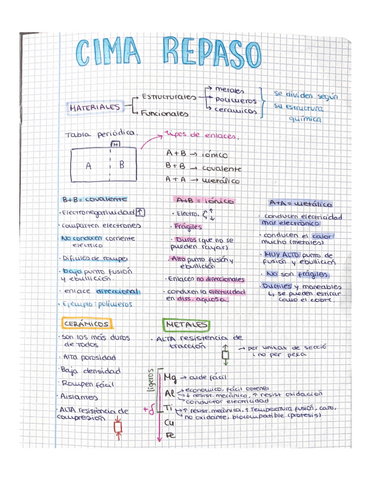 CIMA REPASO
MATERIALES
Estructurales
Funcionales
metales
polímeros
cerámicos
se dividen según
su estructura
química
Tabla periódica.
A
B
tipos de enlaces.
A+B → iónico
B+B → covalente
A+A → metálico
B+B = covalente
· Electronegatividad ↑
· Comparten electrones
· No conducen corriente
eléctrica
· Difíciles de romper
· bajo punto fusión
y ebullición
· enlace direccional
· Ejemplo: polímeros
A+B = iónico
· Electro.
· Frágiles
· Duros (que no se
pueden rayar)
· Alto punto fusión y
ebullición
· Enlaces no direccionales
· conducen la electricidad
en diss. aquosa.
A+A = metálico
conducen electricidad
mar electrónico
· conducen el calor
mucho (metales)
· MUY ALTO punto de
fusión y ebullición
· No son frágiles
· Dúctiles y maneables
↳ se pueden estirar
como el cobre.
CERÁMICOS
· Son los más duros
de todos
· Alta porosidad
· Baja densidad
· Rompen fácil
· Aislantes
· ALTA resistencia de
compresión
METALES
· ALTA resistencia de
tracción
→ por unidad de secció
i no por peso
ligeros
+ δ
Mg → arde fácil
Al → económico, fácil obtener
↓ resist. mecánica, ↑ resist oxidación
conductor electricidad
Ti → ↑ resist. mecánica, ↑ temperatura fusión, caro,
no oxidante, biocompatible (protesis)
Cu
Fe